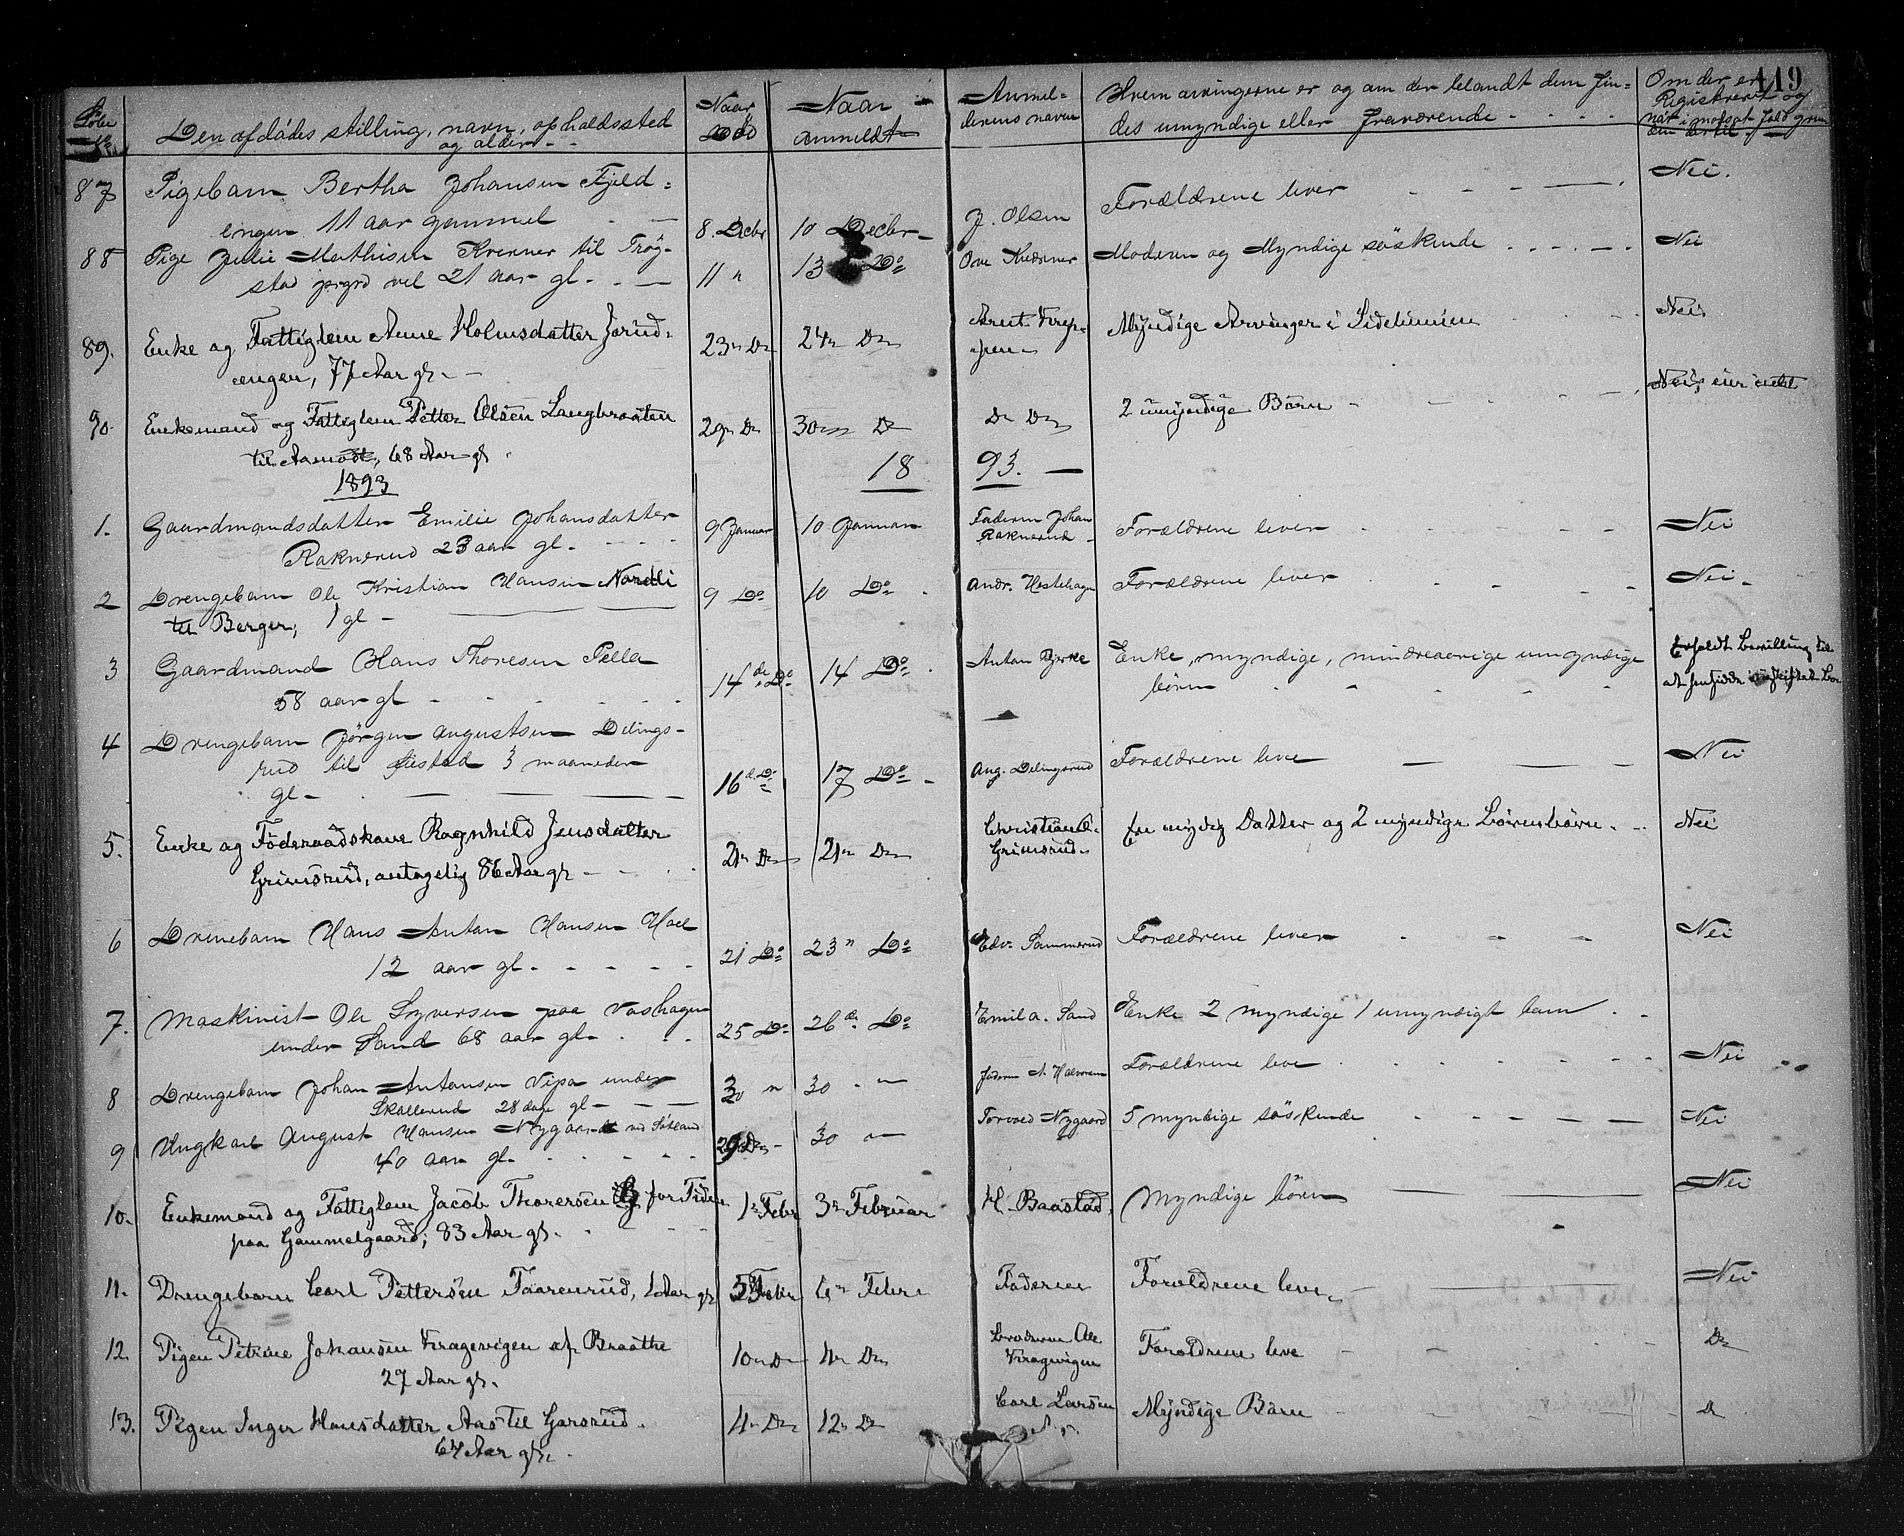 119
Løbe No Den afdødes stilling, navn, opholdssted og alder Naar død Naar anmeldt Anmelderens navn Hvem arvingerne er og om der blandt dem findes umyndige eller fraværende Om der er Registrert og naar i modsat fald grunden dertil
87 Pigebarn Bertha Johansen Fjeld-
engen 11 aar gammel 8. Decbr 10 Decbr J. Olsen Forældrene lever Nei.
88 Pige Julie Mathisen Krerner til Trøg-
stad prgrd vel 21 aar gl. 11 " 13 Do Ove Moderen og Myndige søskende Nei
89. Enke og Fattiglem Anne Holmsdatter
engen, 77 Aar gl. 23 Do 24 Do Arent Myndige Arvinger i Sidelinnien Nei
90. Enkemand og Fattiglem Petter Olsen Langbraaten
til Aamodt, 68 Aar gl. 29 Do 30 Do Do Do 2 umyndige Børn Nei, eier intet
1893 18 93.
1. Gaardmandsdatter Emilie Johansdatter
Raknerud 23 aar gl. 9 Januar 10 Januar Faderen Johan Raknerud Forældrene lever Nei
2 Drengebarn Ole Kristian Hansen Nordli
til Berger, 1 gl 9 Do 10 Do Andr. Hestehagen Forældrene lever Nei
3 Gaardmand Hans Thoresen Tella
58 aar gl 14de Do 14 Do Anton Bjerke Enke, myndige, mindreaarige umyndige børn Erholdt bevilling til
at hensidde i uskiftet Bo
4 Drengebarn Jørgen Augustsen Delings-
rud til 3 maaneder
gl 16 d. Do 17 Do Aug. Delingsrud Forældrene leve Nei
5. Enke og Føderaadskone Ragnhild Jensdatter
Grimsrud, antagelig 86 Aar gl 21 Do 21 Do Christian Grimsrud En myndig Datter og 2 myndige Børnebørn. Nei
6 Drenebarn Hans Antan Hansen Hoel
12 aar gl. 21 Do 23 " Do Edv. Sammerud Forældrene lever Nei
7. Maskinist Ole Syversen paa Vashagen
under Sand 68 aar gl 25 Do 26 d. Do Emil A. Sand Enke 2 myndige 1 umyndigt barn
8 Drengebarn Johan Antonsen Vipa under
Skallerud 28 dage gl 30 " 30 " Faderen A. Halvorsen Forældrene leve Nei
9 Ungkarl August Hansen Nygaard ved
40 aar gl. 29 Do 30 " Torvald Nygaard 5 myndige søskende Nei
10. Enkemand og Fattiglem Jacob Thoresen for Tiden
paa Gammelgaard; 83 Aar gl. 1 Febr 3 Februar H. Baastad. Myndige børn Nei
11. Drengebarn Carl Pettersen Taarenrud, Aar gl 5 Febr 6 Febr Faderen Forældrene leve Nei
12. Pigen Petrine Johansen Kragevigen af Braathe
27 Aar gl. 10 Do 11 Do Broderen Ole Kragevigen Forældrene leve Do
13. Pigen Inger Hansdatter Aas til Garsrud.
67 Aar gl. 4 Do 12 Do Carl Larsen Myndige Børn Do